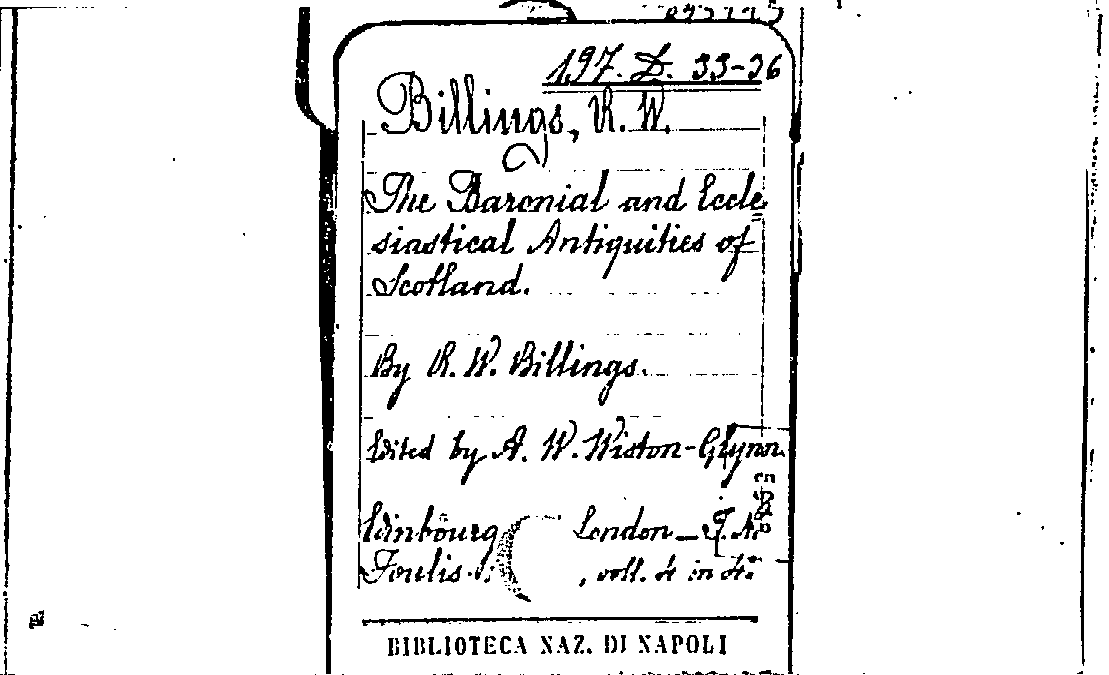 197. D. 33-36
Billings, R. W.
The Baronial and Eccle
siastical Antiquities of
Scotland.
By R. W. Billings.
Edited by A. W. Wiston-Glynn.
Edinbourg London _ T. N.
Foulis. , voll. 4 in 4°
BIBLIOTECA NAZ. DI NAPOLI